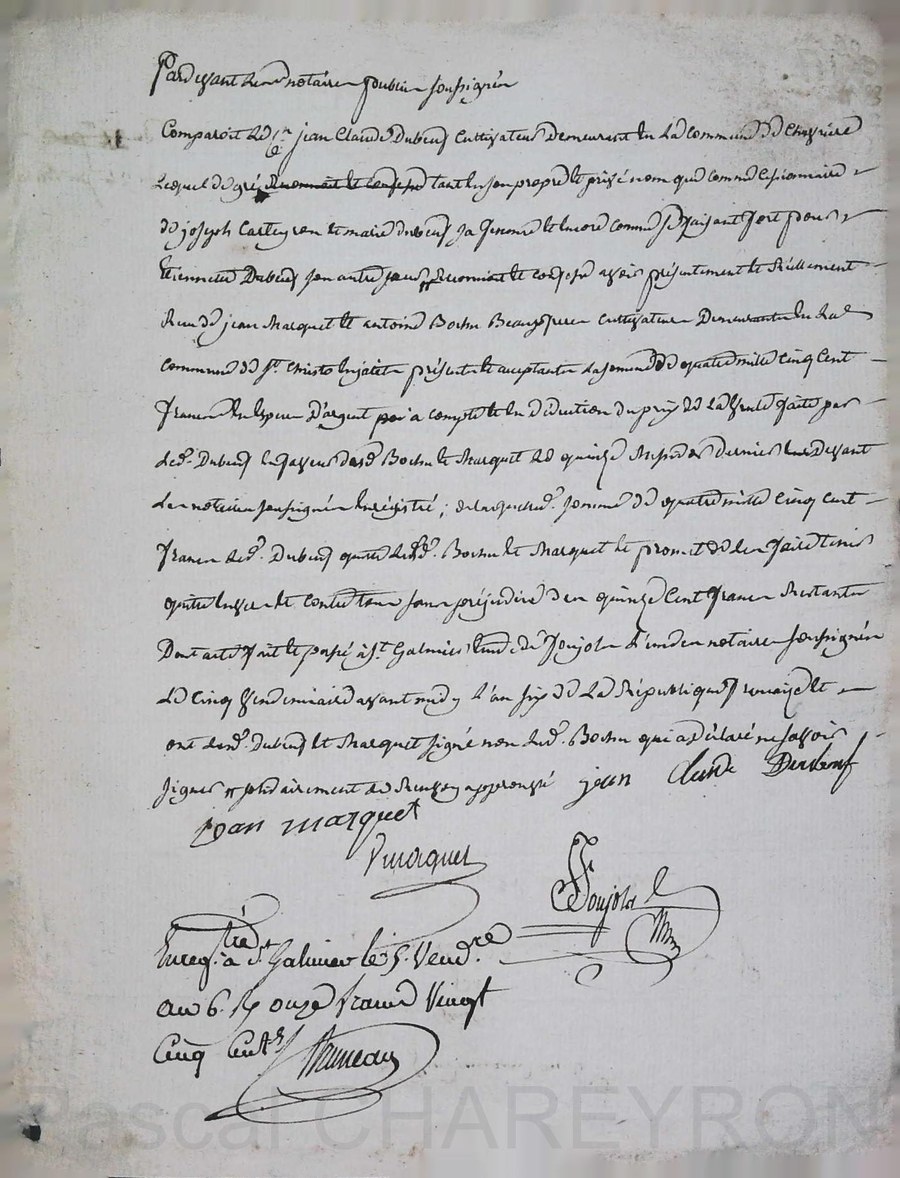 Pardevant les notaires publics soussignés
Comparoit le c.en jean Claude Dubeuf Cultivateur Demeurant En La Commune de
Lequel de gré reconnoit et confesse tant en son propre et privé nom que comme cessionnaire
de joseph Carteyron et marie dubeuf sa femme et encore comme se faisant fort pour
Etiennette Dubeuf son autre soeur reconnoit et confesse avoir présentement et réellement
Reçu de jean Marquet et antoine Bochu Beaupere cultivateurs Demeurants En La
commune de St. Christo présents et acceptants La somme de quatre mille Cinq Cent
francs En Espèces D'argent à compte et En déduction du prix de La vente faite par
led. Dubeuf En faveur desd. Bochu et Marquet Le quinze Messidor dernier devant
Les notaires soussignés Enrégistré ; de laquelle d. somme de quatre mille Cinq Cent
francs led. Dubeuf quitte lesd. Bochu et Marquet et promet de les faire tenir
quitte Envers et contre tous sans préjudice des quinze Cent francs Restants
Dont acte fait et passé à St. Galmier Etude de Soujol L'un des notaires soussignés
Le Cinq Vendemiaire avant midy L'an six de La République française et
ont lesd. Dubeuf et Marquet signé non led. Bochu qui a déclaré ne savoir
signer solidairement approuvé jean Claude Dubeuf
jean marquet
Soujol
Enreg.tré à St. Galmier le 5. Vend.re
an 6. R onze francs Vingt
Cinq Cent.es
Pascal CHAREYRON